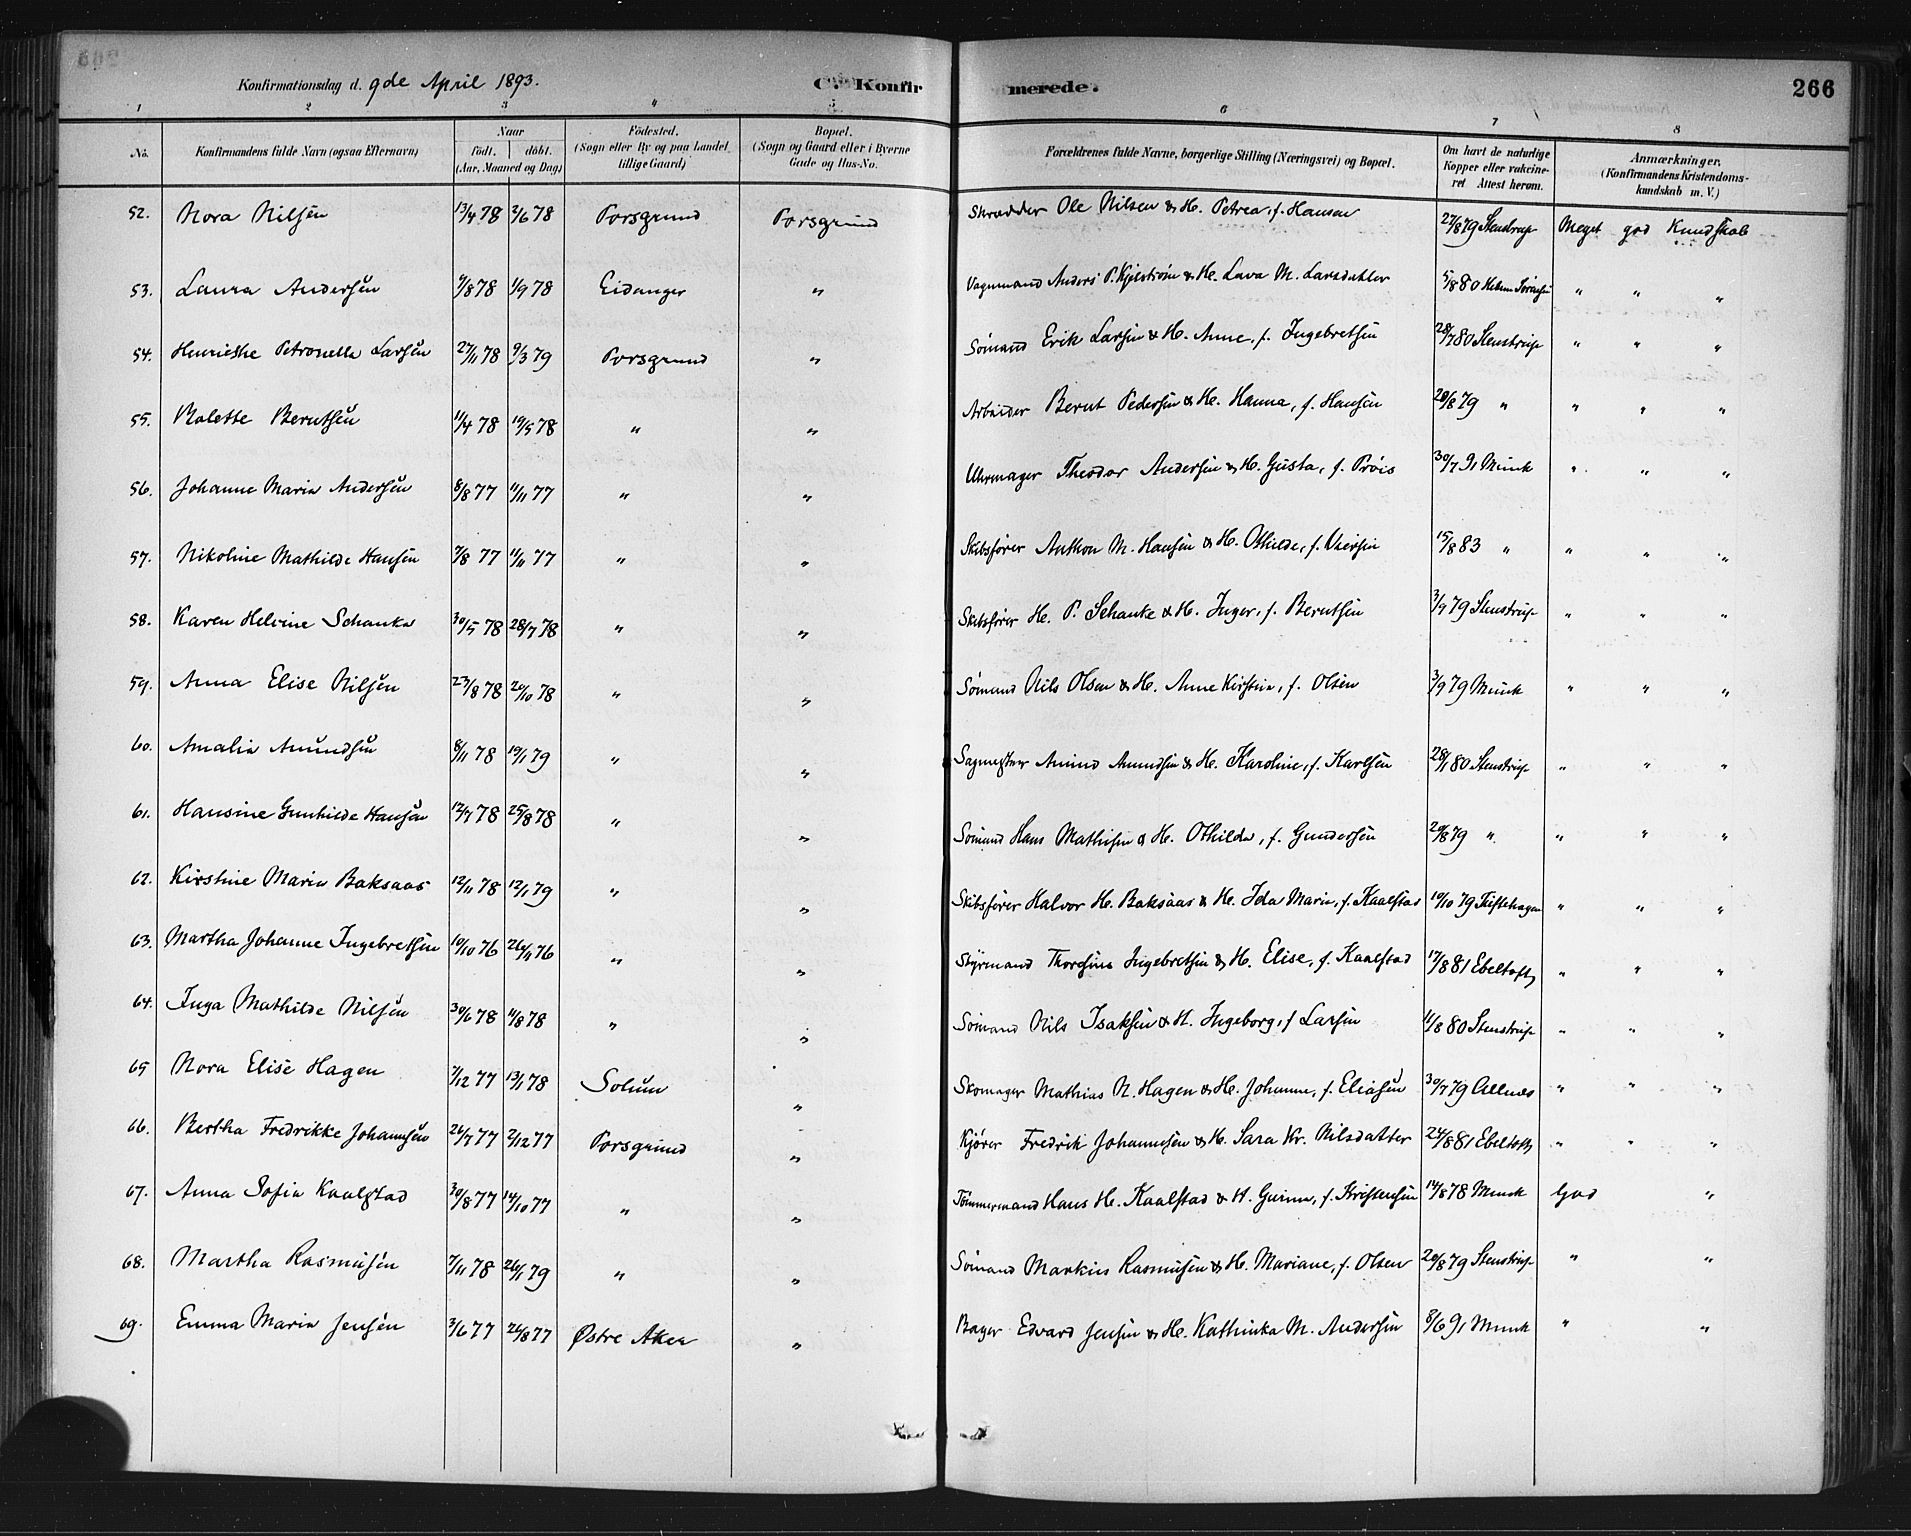 Konfirmationsdag d. 9de April 1893. C. Konfirmerede. 266
1 2 3 4 5 6 7 8
No. Konfirmandens fulde Navn (ogsaa Efternavn) Naar Födt. döbt. (Aar, Maaned og Dag) Födested. (Sogn eller By og paa Landet tillige Gaard) Bopæl. (Sogn og Gaard eller i Byerne Gade og Hus-No. Forældrenes fulde Navne, borgerlige Stilling (Næringsvei) og Bopæl. Om havt de naturlige Kopper eller vakcineret Attest herom. Anmærkninger. (Konfirmandens Kristendomskundskab m. V.)
52. Nora Nilsen 13/4 78 2/6 78 Porsgrund Porsgrund Skrædder Ole Nilsen & H. Petrea, f. Hansen 27/8 79 Stenstrup Meget god Kundskab
53. Laura Andersen 9/8 78 1/9 78 Eidanger " Vognmand Anders P. Kjelstrøm & H. Lava M. Larsdatter 5/8 80 " " "
54. Henriethe Petronella Larsen 27/11 78 9/3 79 Porsgrund " Sømand Erik Larsen & H. Anne, f. Ingebretsen 28/7 80 Stenstrup " " "
55. Bolette Berntsen 11/4 78 19/5 78 " " Arbeider Bernt Pedersen & H. Hanna, f. Hansen 20/8 79 " " " "
56. Johanne Maria Andersen 8/8 77 11/11 77 " " Uhrmager Theodor Andersen & H. Gusta, f. Prøis 30/7 91 Munk " " "
57. Nikoline Mathilde Hansen 7/8 77 11/11 77 " " Skibsfører Anthon M. Hansen & H. Othilde, f. 15/8 83 " " " "
58. Karen Helvine Schanke 30/5 78 28/7 78 " " Skibsfører H. P. Schanke & H. Inger, f. Berntsen 3/9 79 Stenstrup " " "
59. Anna Elise Nilsen 23/8 78 20/10 78 " " Sømand Nils Olsen & H. Anne Kirstine, f. Olsen 3/9 79 Munk " " "
60. Amalia Amundsen 8/11 78 19/1 79 " " Sagmester Amund Amundsen & H. Karoline, f. Karlsen 28/1 80 Stenstrup " " "
61. Hansine Gunhilde Hansen 12/7 78 25/8 78 " " Sømand Hans Mathisen & H. Othilda, f. Gundersen 20/8 79 " " " "
62. Kirstine Maria Baksaas 12/11 78 12/1 79 " " Skibsfører Halvor H. Baksaas & H. Ida Marie, f. Kaalstad 10/10 79 " " "
63. Martha Johanne Ingebretsen 10/10 76 26/11 76 " " Styrmand Thorsten Ingebretsen & H. Elise, f. Kaalstad 17/8 81 Ebeltoft " " "
64. Inga Mathilde Nilsen 30/6 78 11/8 78 " " Sømand Nils Isaksen & H. Ingeborg, f. Larsen 11/8 80 Stenstrup " " "
65 Nora Elise Hagen 7/12 77 13/1 78 Solum " Skomager Mathias N. Hagen & H. Johanne, f. Eliasen 30/7 79 " " "
66. Bertha Fredrikke Johannesen 26/7 77 2/12 77 Porsgrund " Kjører Fredrik Johannesen & H. Sara Kr. Nilsdatter 24/8 81 Ebeltoft " " "
67. Anna Sofia Kaalstad 30/8 77 14/10 77 " " Tømmermand Hans H. Kaalstad & H. Gunne, f. Kristensen 14/8 78 Munk God "
68. Martha Rasmusen 7/11 78 26/1 79 " " Sømand Markus Rasmusen & H. Mariane, f. Olsen 20/8 79 Stenstrup " "
69. Emma Maria Jensen 3/6 77 26/8 77 Østre Aker " Bager Edvard Jensen & H. Kathinka M. Andersen 8/6 91 Munk " "